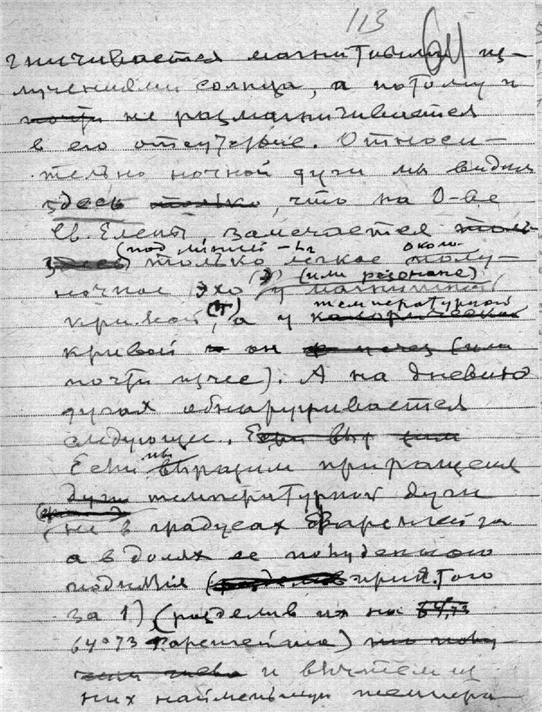 113
64
гничивается магнитными из-
лучениями солнца, а потому и
почти не размагничивается
в его отсутствие. Относи-
тельно ночной дуги мы видим
здесь только, что на О-ве
Св. Елены замечается толь-
(под линией -
только легкое около-
полу-
ночное эхо (или резонанс)
у магнитной
кривой, а у температурной
кривой он
почти исчез). А на дневных
дугах обнаруживается
следующее. Если
Если мы выразим приращения
дуги температурной дуги
не в градусах Фаренгейта
а в долях ее полуденного
поднятия (принятого
за 1) (разделив их на 64,73
64°73 Фаренгейта)
и вычтем из
них наименьшую темпера